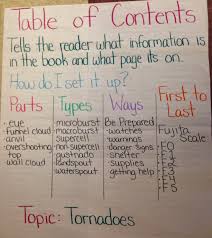 Table of Contents
Tells the reader what information is
in the book and what page its on.
How do I set it up?
Parts
· eye
· funnel cloud
· anvil
· overshooting top
· wall cloud
Types
· microburst
· macroburst
· supercell
· non-supercell
· gustnado
· landspout
· waterspout
Ways
Be Prepared
· watches
· warnings
· danger signs
· shelter
· supplies
· getting help
First to
Last
Fujita
Scale
Topic: Tornadoes